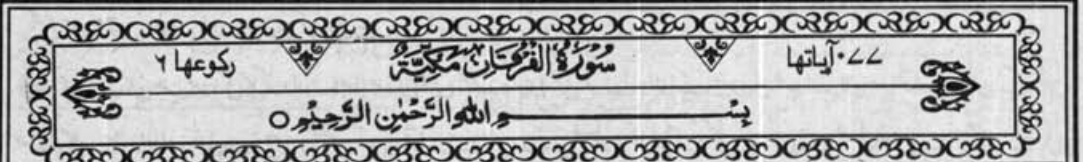 ۷۷ آیاتها سُوْرَةُ الْفُرْقَانِ مَكِّیَّةٌ رکوعها ۶
بِسْمِ اللهِ الرَّحْمٰنِ الرَّحِیْمِ ○